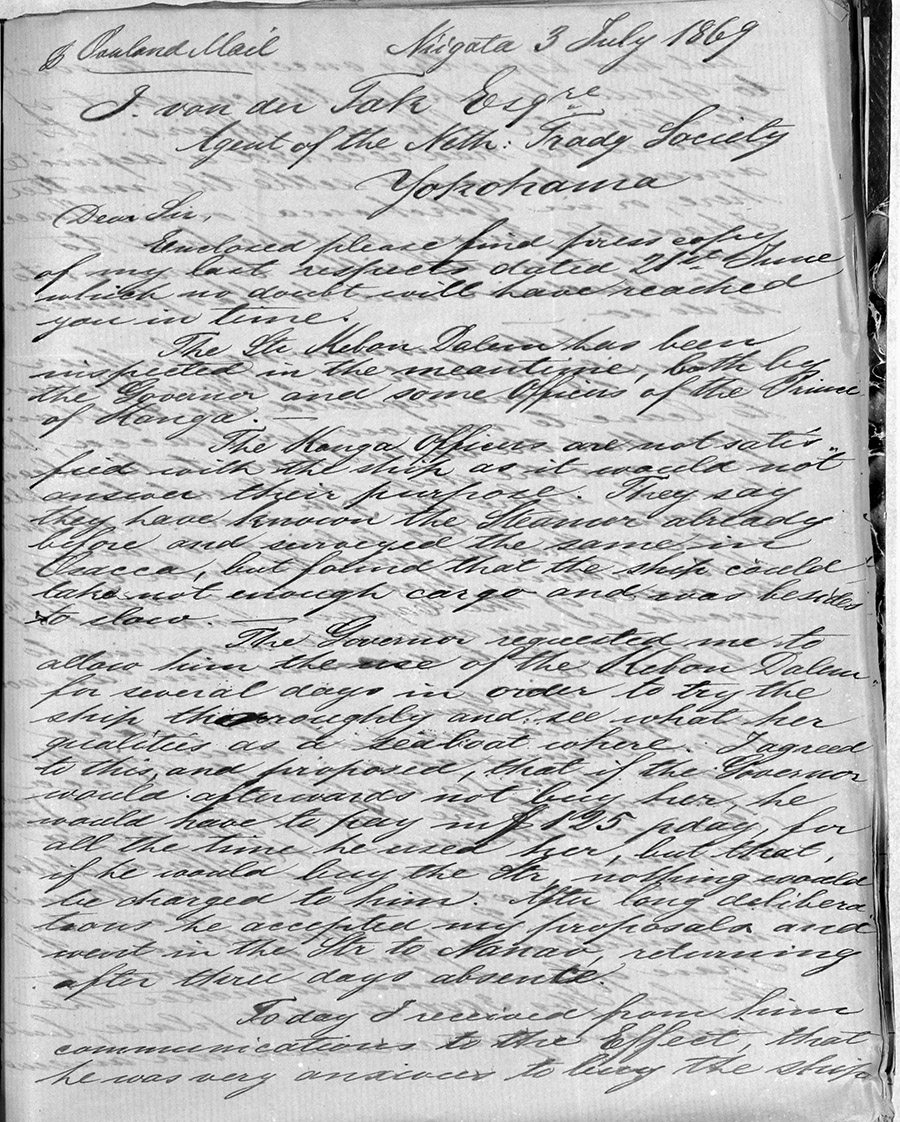 ⅌ Overland Mail
Niigata 3 July 1869
J. van der Tak Esqre
Agent of the Neth: Tradg Society
Yokohama
Dear Sir,
Enclosed please find press copy
of my last respects dated 21st June
which no doubt will have reached
you in time.
The Str Kebon Dalem has been
inspected in the meantime, both by
the Governor and some Officers of the Prince
of Kanga. —
The Kanga Officers are not satis
fied with the ship as it would not
answer their purpose. They say
they have known the Steamer already
before and surveyed the same in
Osacca, but found that the ship could
take not enough cargo and was besides
to slow. —
The Governor requested me to
allow him the use of the Kebon Dalem
for several days in order to try the
ship thoroughly and see what her
qualities as a seaboat where. I agreed
to this, and proposed, that if the Governor
would afterwards not buy her, he
would have to pay m/ $ 125 pday, for
all the time he used her, but that,
if he would buy the Str, nothing would
be charged to him. After long delibera
tions he accepted my proposals and
went in the Str to Nanao, returning
after three days absence.
Today I received from him
communications to the Effect, that
he was very anxious to buy the ship